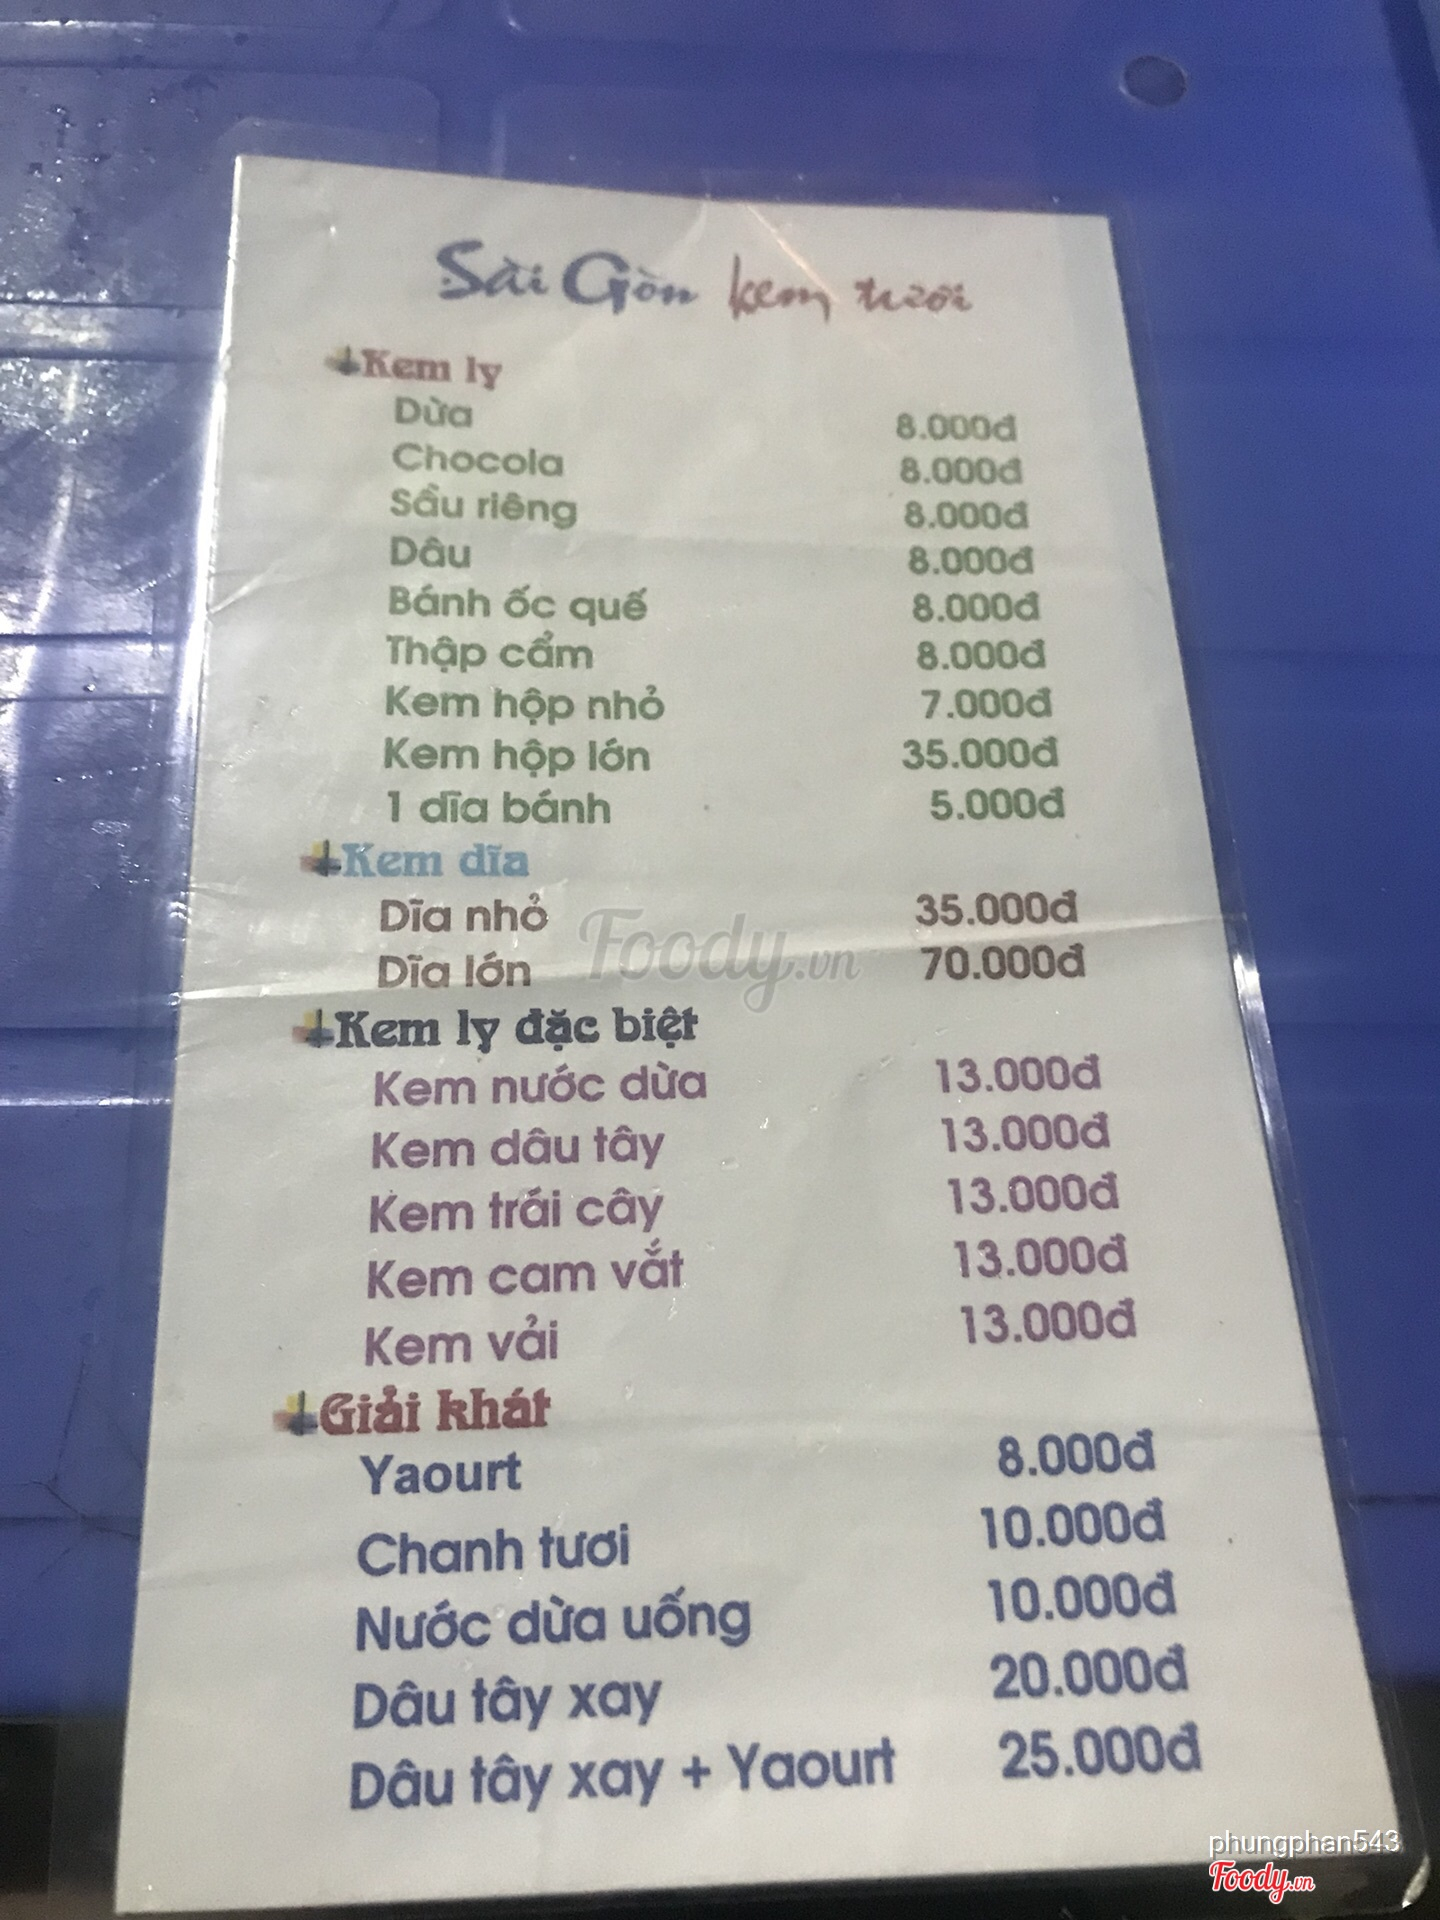 Sài Gòn kem tươi
Kem ly
Dừa 8.000đ
Chocola 8.000đ
Sầu riêng 8.000đ
Dâu 8.000đ
Bánh ốc quế 8.000đ
Thập cẩm 8.000đ
Kem hộp nhỏ 7.000đ
Kem hộp lớn 35.000đ
1 dĩa bánh 5.000đ
Kem dĩa
Dĩa nhỏ 35.000đ
Dĩa lớn 70.000đ
Foody.vn
Kem ly đặc biệt
Kem nước dừa 13.000đ
Kem dâu tây 13.000đ
Kem trái cây 13.000đ
Kem cam vắt 13.000đ
Kem vải 13.000đ
Giải khát
Yaourt 8.000đ
Chanh tươi 10.000đ
Nước dừa uống 10.000đ
Dâu tây xay 20.000đ
Dâu tây xay + Yaourt 25.000đ
phungphan543
Foody.vn